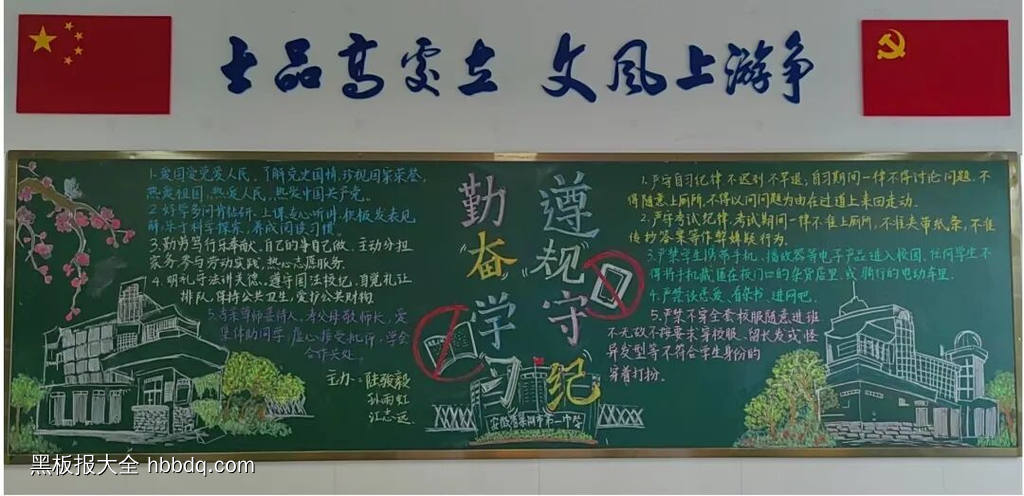 士品高处立 文风上游争
勤奋学习
遵规守纪
1.爱国爱党爱人民,了解党史国情,珍视国家荣誉,
热爱祖国,热爱人民,热爱中国共产党。
2.好学多问肯钻研,上课专心听讲,积极发表见
解,乐于科学探索,养成阅读习惯。
3.勤劳笃行乐奉献,自己的事自己做,主动分担
家务,参与劳动实践,热心志愿服务.
4.明礼守法讲美德,遵守国法校纪,自觉礼让
排队,保持公共卫生,爱护公共财物
5.孝亲尊师善待人,孝父母敬师长,爱
集体助同学,虚心接受批评,学会
合作共处.
主办:
孙雨虹
江志远
1.严守自习纪律,不迟到不早退,自习期间一律不得讨论问题,不
得随意上厕所,不得以问问题为由在过道上来回走动.
2.严守考试纪律,考试期间一律不准上厕所,不准夹带纸条,不准
传抄答案等作弊嫌疑行为.
3.严禁学生携带手机、播放器等电子产品进入校园,任何学生不
得将手机藏匿在校门口的杂货店里,或骑行的电动车里.
4.严禁谈恋爱、看杂书、进网吧.
5.严禁不穿全套校服随意进班
不无故不按要求穿校服、留长发或怪
异发型等不符合学生身份的
穿着打扮.
安徽省巢湖市第一中学
黑板报大全 hbbdq.com